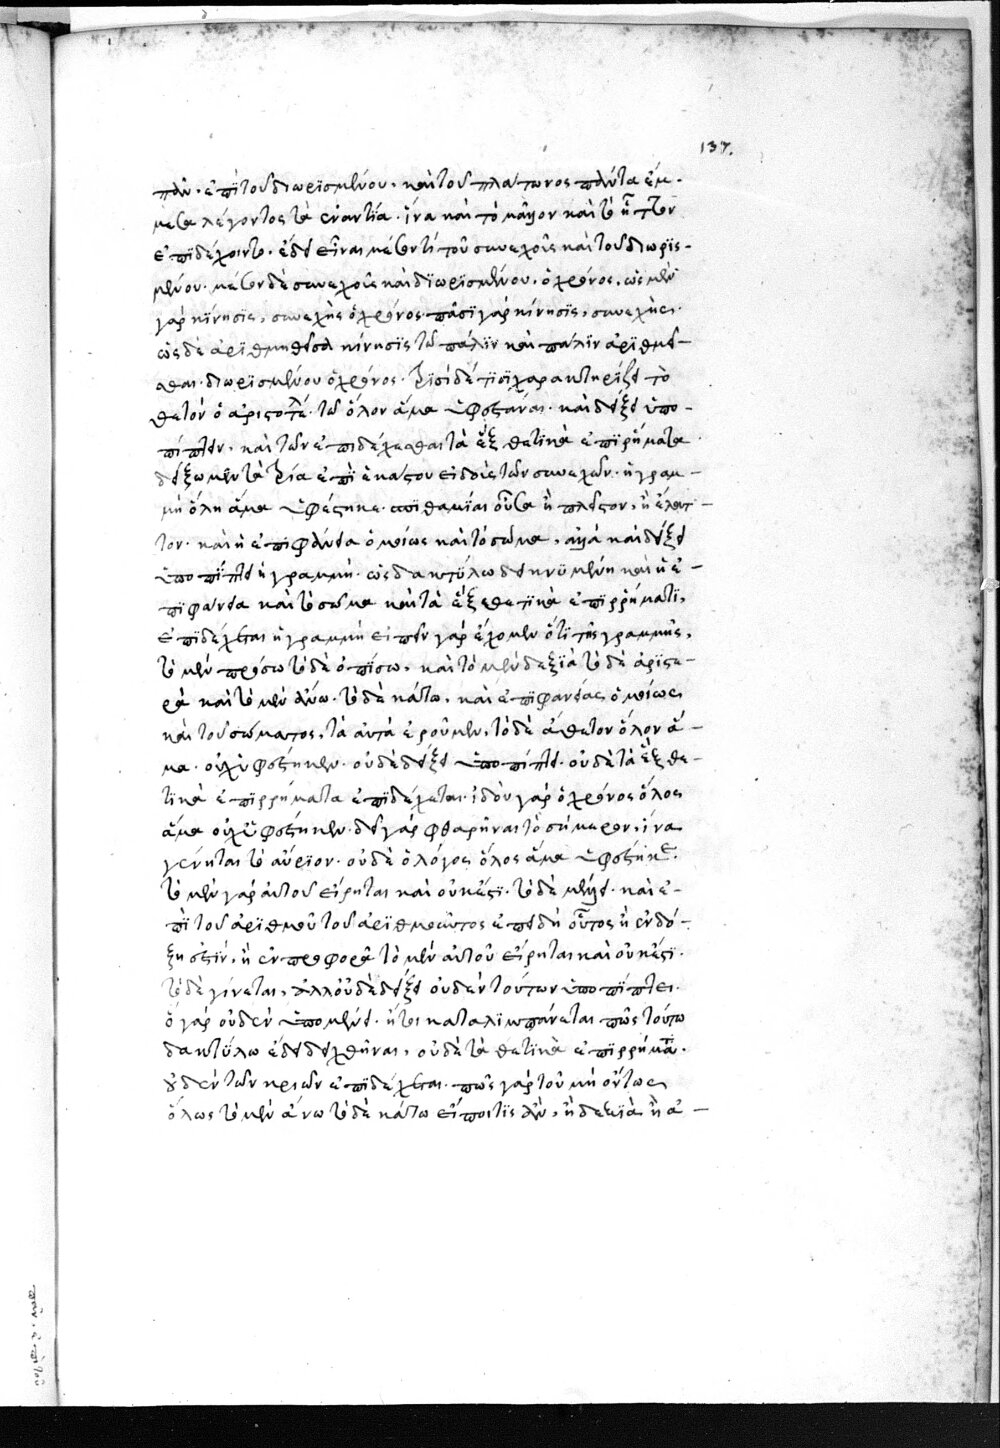 137.
πᾶν. ἐπὶ τοῦ διωρισμένου. καὶ τοῦ πλάτωνος πάντα ἔμ-
μεσα λέγοντος τὰ ἐναντία. ἵνα καὶ τὸ μᾶλλον καὶ τὸ ἧττον
ἐπιδέχοιντο. ἔδει εἶναι μέσον τί τοῦ συνεχοῦς καὶ τοῦ διωρισ-
μένου. μέσον δὲ συνεχοῦς καὶ διωρισμένου, ὁ χρόνος. ὡς μὲν
γὰρ κίνησις, συνεχὴς ὁ χρόνος. πᾶσι γὰρ κίνησις, συνεχής.
ὡς δὲ ἀριθμηθεῖσα κίνησις τῶ πάλιν καὶ πάλιν ἀριθμεῖ-
σθαι. διωρισμένου ὁ χρόνος. τρισὶ δέ τισι χαρακτηρίζει τὸ
θετὸν ὁ ἀριστοτέλ. τῶ ὅλον ἅμα ὑφεστάναι. καὶ δείξει ὑπο-
πίπτειν. καὶ τῶν ἐπιδέχεσθαι τὰ ἓξ θετικὰ ἐπιρρήματα.
δείξωμεν τὰ τρία ἐπὶ ἑκάστου εἴδους τῶν συνεχῶν. ἡ γραμ-
μὴ ὅλη ἅμα ὑφέστηκε. σπιθαμίαι οὖσα ἢ πλεῖστον, ἢ ἔλατ-
τον. καὶ ἡ ἐπιφάνεια ὁμοίως καὶ τὸ σῶμα, ἀλλὰ καὶ δείξει
ὑποπίπτει ἡ γραμμή. ὡς δακτύλω δεικνυμένη καὶ ἡ ἐ-
πιφάνεια καὶ τὸ σῶμα καὶ τὰ ἓξ θετικὰ ἐπιρρήματι.
ἐπιδέχεται ἡ γραμμὴ εἰπεῖν γὰρ ἔχομεν ὅτι τῆς γραμμῆς,
τὸ μὲν πρόσω τὸ δὲ ὀπίσω, καὶ τὸ μὲν δεξιὰ τὸ δὲ ἀριστε-
ρὰ καὶ τὸ μὲν ἄνω. τὸ δὲ κάτω, καὶ ἐπιφανείας ὁμοίως
καὶ τοῦ σώματος, τὰ αὐτὰ ἐροῦμεν, τὸ δὲ ἄθετον ὅλον ἅ-
μα. οὐχ ὑφέστηκεν. οὐδὲ δείξει ὑποπίπτει. οὐδὲ τὰ ἓξ θε-
τικὰ ἐπιρρήματα ἐπιδέχεται. ἰδοὺ γὰρ ὁ χρόνος ὅλος
ἅμα οὐχ ὑφέστηκεν. δεῖ γὰρ φθαρῆναι τὸ σήμερον, ἵνα
γένηται τὸ αὔριον. οὐδὲ ὁ λόγος ὅλος ἅμα ὑφέστηκε.
τὸ μὲν γὰρ αὐτοῦ εἴρηται καὶ οὐκ ἔστι. τὸ δὲ μέλλει. καὶ ἐ-
πὶ τοῦ ἀριθμοῦ τοῦ ἀριθμοῦντος ἐπειδὴ οὗτος ἢ ἐνδό-
ξη ἐστὶν, ἢ ἐν προφορᾷ τὸ μὲν αὐτοῦ εἴρηται καὶ οὐκ ἔστι.
τὸ δὲ γίνεται, ἀλλ' οὐδὲ δείξει οὐδὲν τούτων ὑποπίπτει.
ὃ γὰρ οὐδὲν ὑπομένει. ἤτοι καταλιμπάνεται πῶς τούτω
δακτύλω ἔδει δειχθῆναι, οὐδὲ τὰ θετικὰ ἐπιρρήματα.
οὐδὲν τῶν τριῶν ἐπιδέχεται. πῶς γὰρ τοῦ μὴ ὄντος
ὅλως τὸ μὲν ἄνω τὸ δὲ κάτω εἴποι τις ἂν, ἢ δεξιὰ ἢ ἀ-